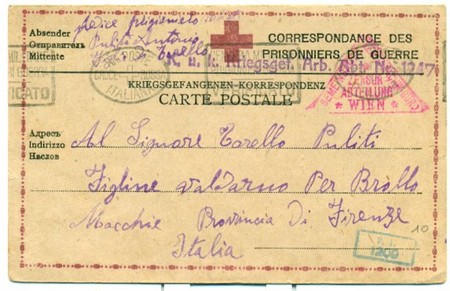 Absender
Отправитель
Mittente
Puliti Antonio
Torello
CORRESPONDANCE DES
PRISONNIERS DE GUERRE
K. u. k. Kriegsgef. Arb. Abt. Nr. 1247
CROCE ROSSA
ITALIANA
KRIEGSGEFANGENEN-KORRESPONDENZ
CARTE POSTALE
ZENSUR
ABTEILUNG
* WIEN *
Адресъ
Indirizzo
Al Signore Torello Puliti
Figline Valdarno Per Brollo
Macchie Provincia Di Firenze
Italia
10
1200